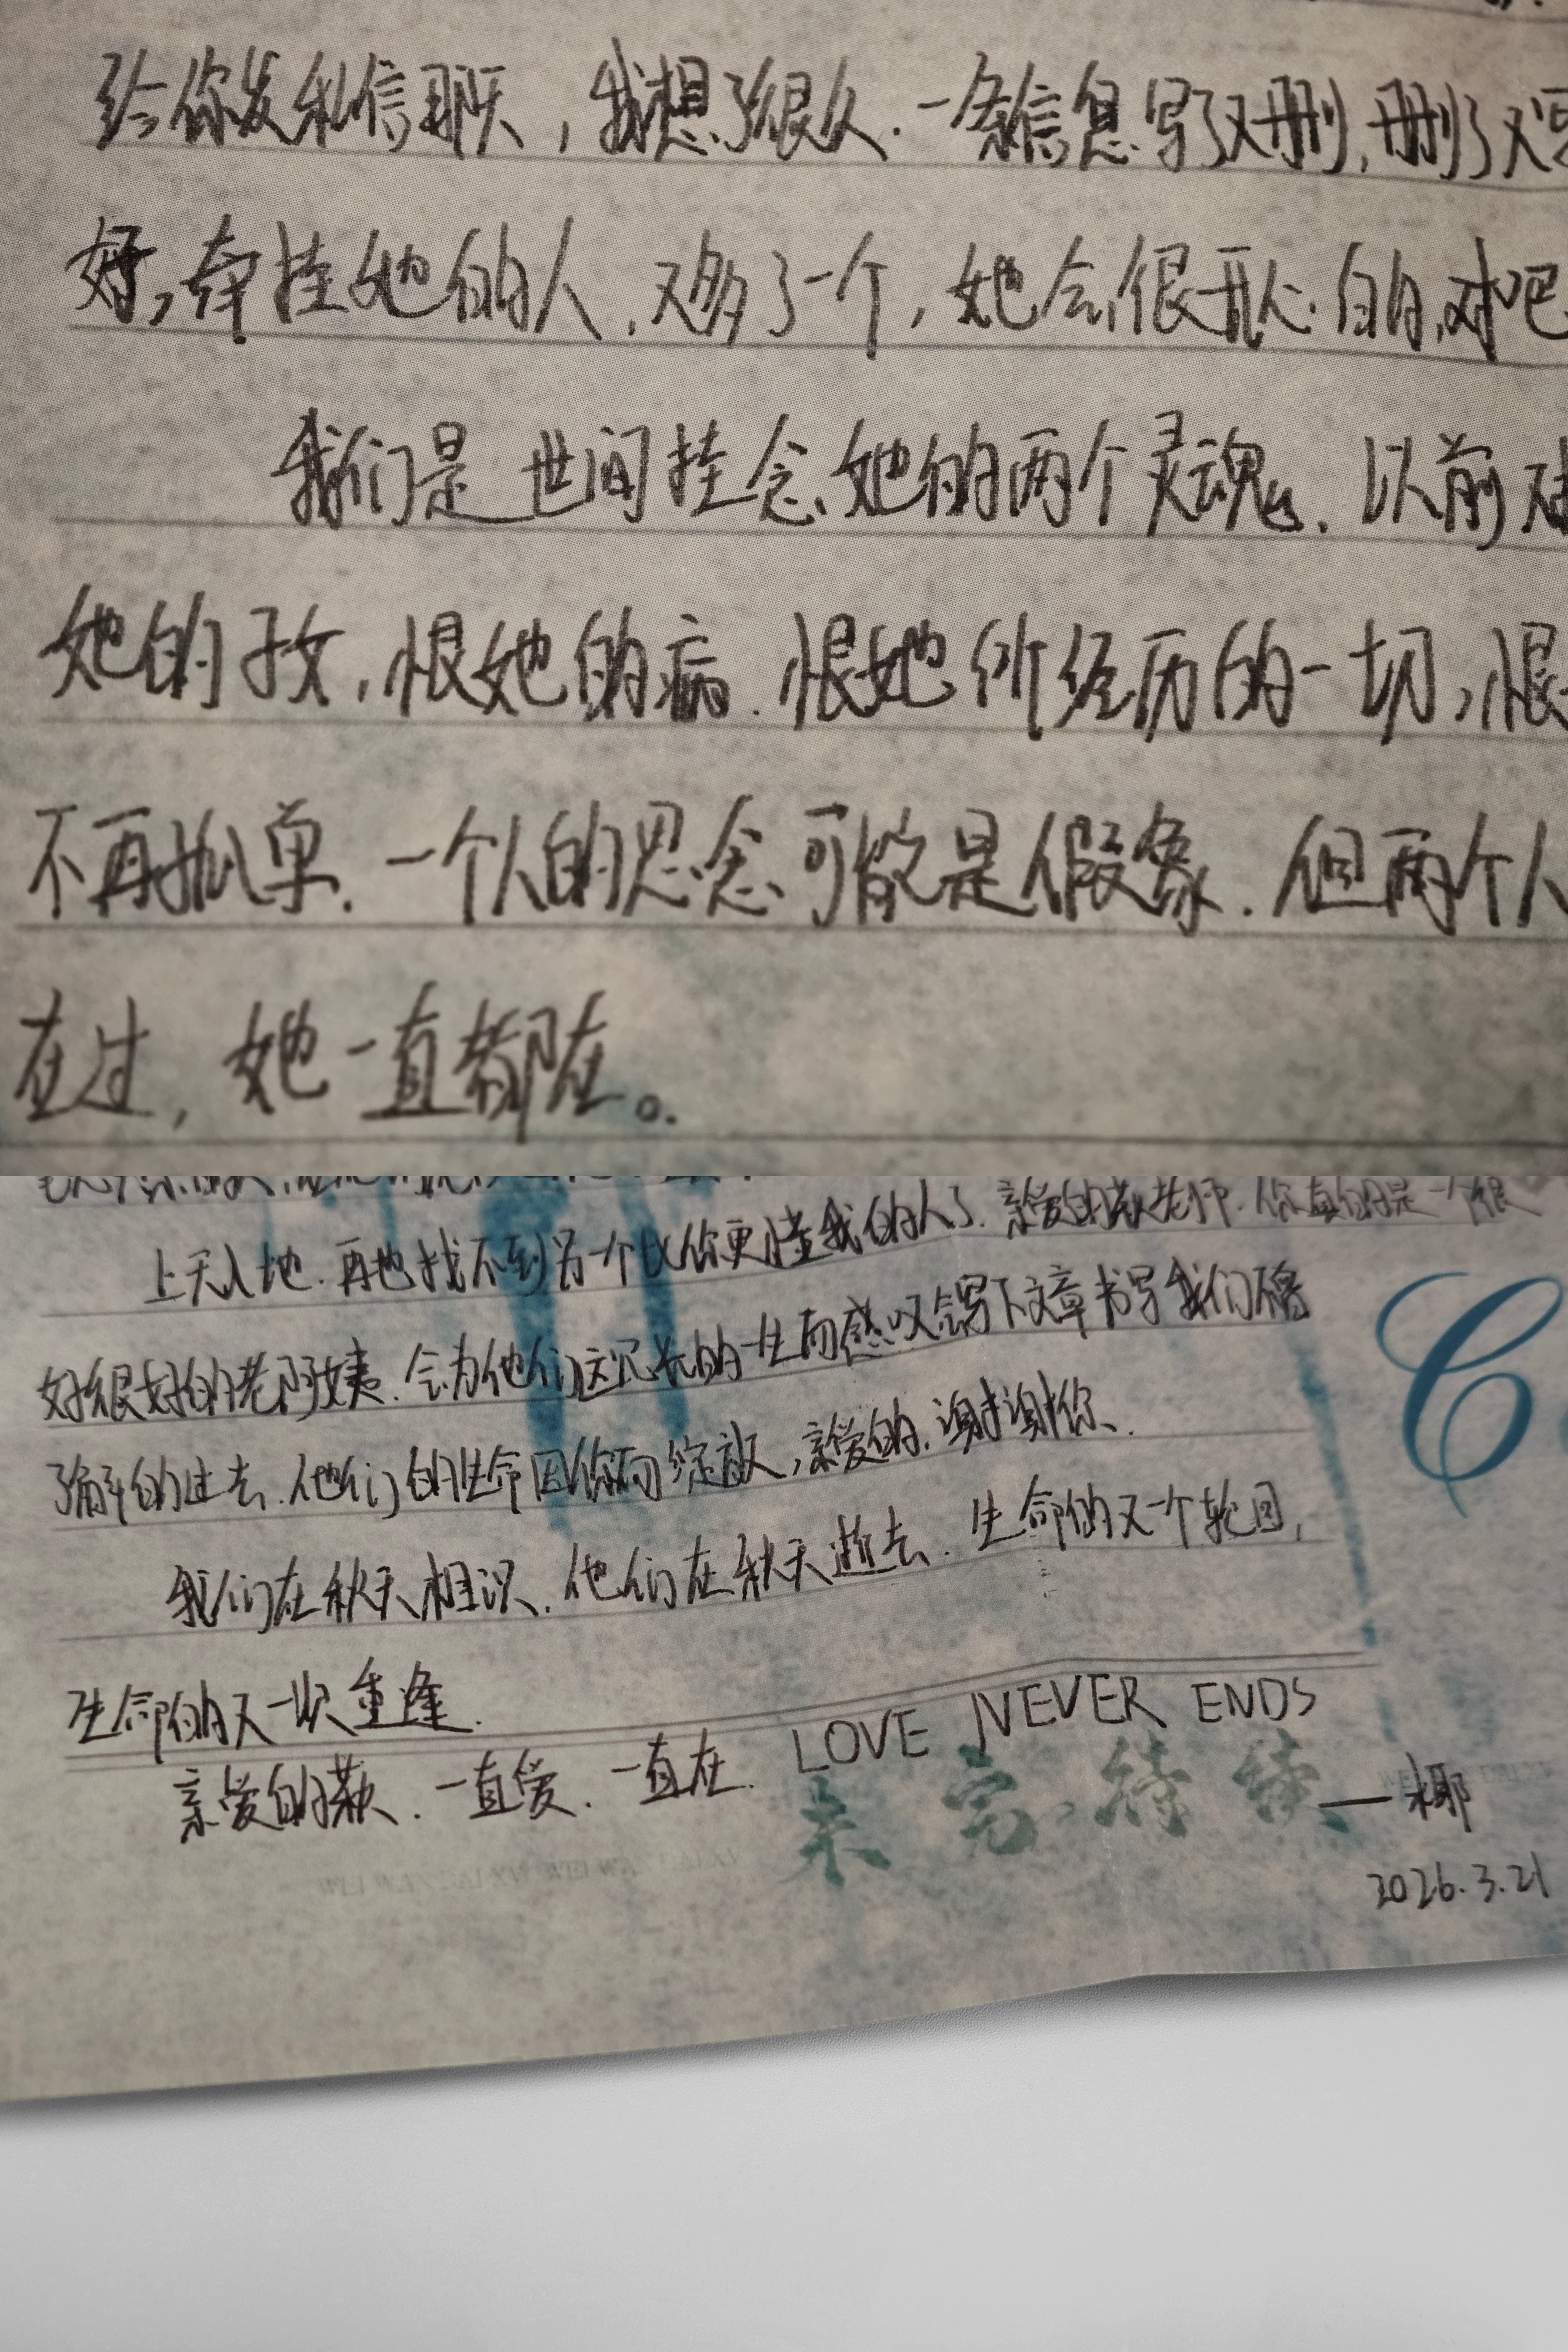 给你发私信聊天,我想了很久.一条信息写了又删,删了又写
好,牵挂她的人.又多了一个,她会很开心的,对吧
我们是世间挂念她的两个灵魂.以前
她的孜,恨她的病.恨她所经历的一切,恨
不再孤单.一个人的思念可能是假象.但两个人
在过,她一直都在。
上天入地.再也找不到另一个比你更懂我的人了.亲爱的歉老师.你真的是一个很
好很好的老阿姨.会为他们这冗长的一生而感叹会写下文章书写我们不得
了解的过去.他们的生命因你而绽放,亲爱的.谢谢你.
我们在秋天相识.他们在秋天逝去.生命的又一个轮回,
生命的又一次重逢.
亲爱的歉.一直爱.一直在.LOVE NEVER ENDS
未完待续
——椰
2026.3.21
C